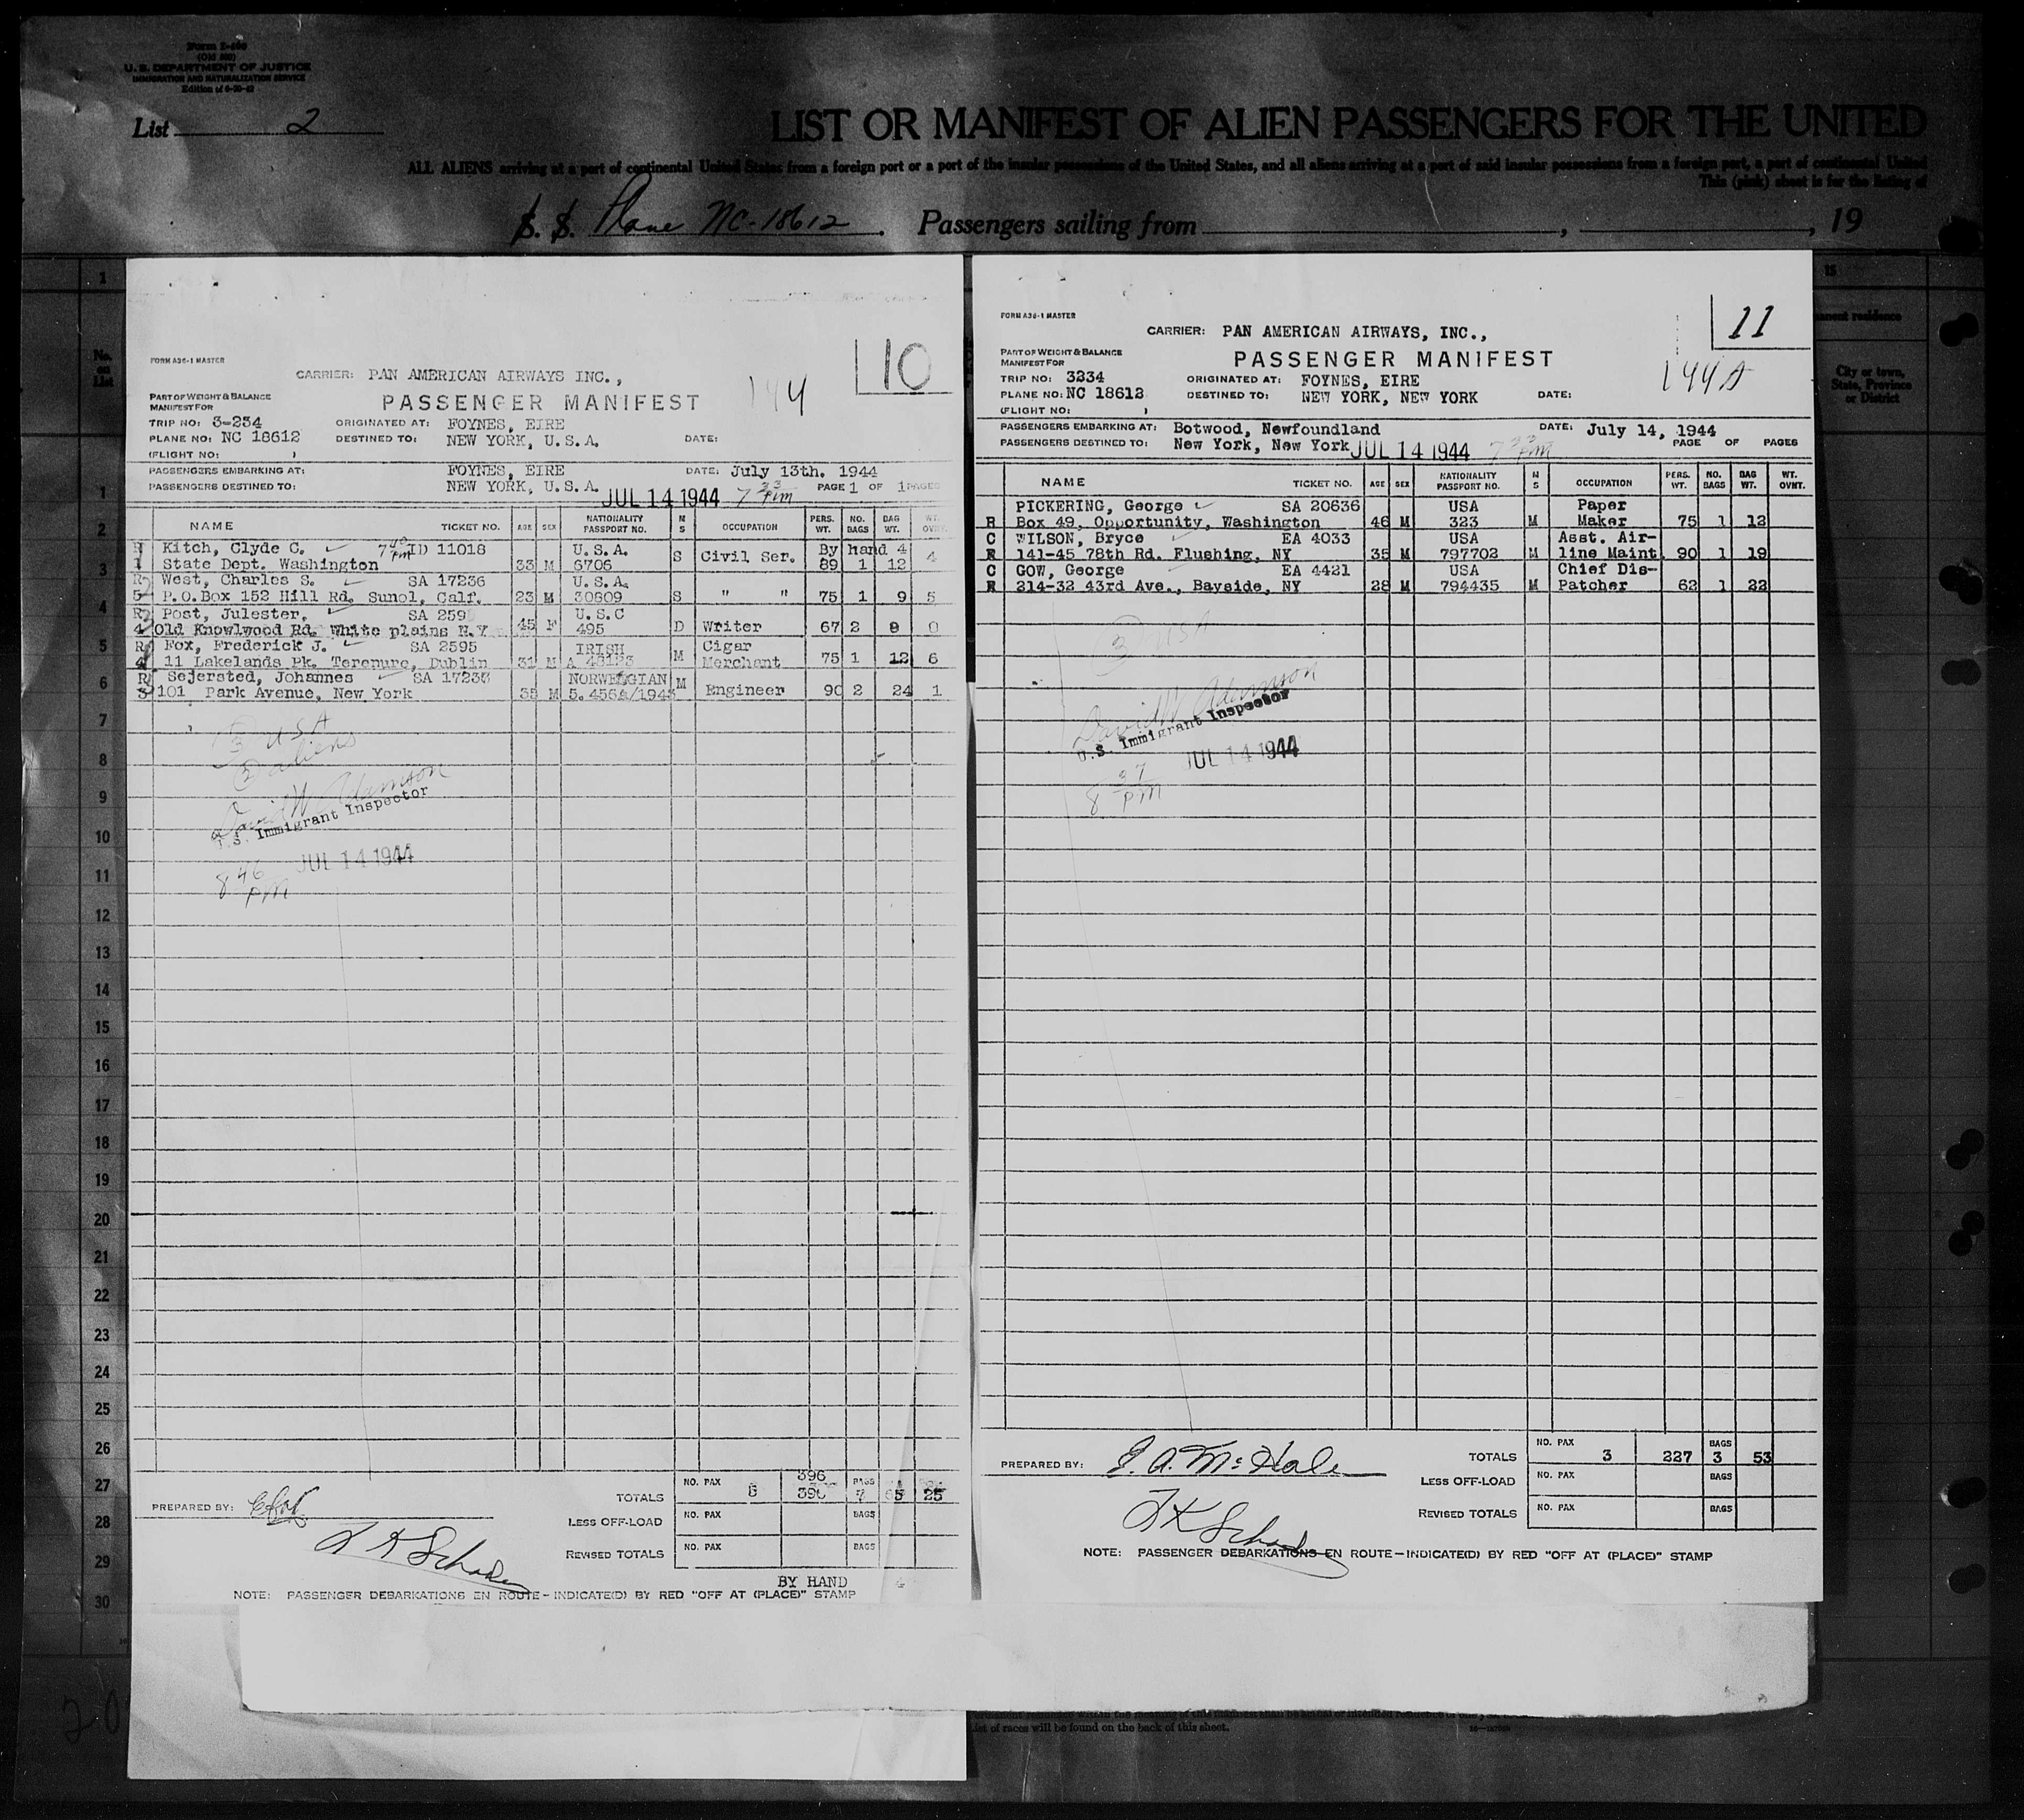 Form I-466
(Old 500)
U. S. DEPARTMENT OF JUSTICE
IMMIGRATION AND NATURALIZATION SERVICE
List 2
LIST OR MANIFEST OF ALIEN PASSENGERS FOR THE UNITED
ALL ALIENS arriving at a port of continental United States from a foreign port or a port of the insular possessions of the United States, and all aliens arriving at a port of said insular possessions from a foreign port, a port of continental United
This (pink) sheet is for the listing of
S. S. Plane NC-18612. Passengers sailing from , , 19
10
FORM A36-1 MASTER
CARRIER: PAN AMERICAN AIRWAYS INC.,
144
PART OF WEIGHT & BALANCE
MANIFEST FOR
PASSENGER MANIFEST
TRIP NO: 3-234 ORIGINATED AT: FOYNES, EIRE
PLANE NO: NC 18612 DESTINED TO: NEW YORK, U. S. A. DATE:
(FLIGHT NO: )
PASSENGERS EMBARKING AT: FOYNES, EIRE DATE: July 13th. 1944
PASSENGERS DESTINED TO: NEW YORK, U. S. A. JUL 14 1944 7 33 pm PAGE 1 OF 1 PAGES
NAME TICKET NO. AGE SEX NATIONALITY PASSPORT NO. M S OCCUPATION PERS. WT. NO. BAGS BAG WT. WT. OVWT.
Kitch, Clyde C. 7 40 pm ID 11018 U. S. A. By hand 4
1 State Dept. Washington 33 M 6706 S Civil Ser. 89 1 12 4
R West, Charles S. SA 17236 U. S. A.
5 P.O.Box 152 Hill Rd. Sunol, Calf. 23 M 30809 S " " 75 1 9 5
R Post, Julester. SA 259 U. S. C
4 Old Knowlwood Rd. White plains N.Y 45 F 495 D Writer 67 2 8 0
R Fox, Frederick J. SA 2595 IRISH Cigar
4 11 Lakelands Pk. Terenure, Dublin 31 M A 48123 M Merchant 75 1 12 6
R Sejersted, Johannes SA 17237 NORWEGIAN
3 101 Park Avenue, New York 35 M 5.456A/1943 M Engineer 90 2 24 1
3 USA
2 aliens
David W Adamson
U. S. Immigrant Inspector
JUL 14 1944
8 46 PM
TOTALS NO. PAX 5 396 396 BAGS 7 65 25
PREPARED BY:
LESS OFF-LOAD NO. PAX BAGS
REVISED TOTALS NO. PAX BAGS
BY HAND 4
NOTE: PASSENGER DEBARKATIONS EN ROUTE-INDICATE(D) BY RED "OFF AT (PLACE)" STAMP
11
FORM A36-1 MASTER
CARRIER: PAN AMERICAN AIRWAYS, INC.,
144A
PART OF WEIGHT & BALANCE
MANIFEST FOR
PASSENGER MANIFEST
TRIP NO: 3234 ORIGINATED AT: FOYNES, EIRE
PLANE NO: NC 18612 DESTINED TO: NEW YORK, NEW YORK DATE:
(FLIGHT NO: )
PASSENGERS EMBARKING AT: Botwood, Newfoundland DATE: July 14, 1944
PASSENGERS DESTINED TO: New York, New York JUL 14 1944 7 33 pm PAGE OF PAGES
NAME TICKET NO. AGE SEX NATIONALITY PASSPORT NO. M S OCCUPATION PERS. WT. NO. BAGS BAG WT. WT. OVWT.
PICKERING, George SA 20636 USA Paper
R Box 49, Opportunity, Washington 46 M 323 M Maker 75 1 12
C WILSON, Bryce EA 4033 USA Asst. Air-
R 141-45 78th Rd. Flushing, NY 35 M 797702 M line Maint. 90 1 19
C GOW, George EA 4421 USA Chief Dis-
R 214-32 43rd Ave., Bayside, NY 28 M 794435 M Patcher 62 1 22
3 USA
David W Adamson
U. S. Immigrant Inspector
JUL 14 1944
8 37 PM
PREPARED BY: J. A. McHale TOTALS NO. PAX 3 227 BAGS 3 53
LESS OFF-LOAD NO. PAX BAGS
REVISED TOTALS NO. PAX BAGS
NOTE: PASSENGER DEBARKATIONS EN ROUTE-INDICATE(D) BY RED "OFF AT (PLACE)" STAMP
No. on List
1
1
2
3
4
5
6
7
8
9
10
11
12
13
14
15
16
17
18
19
20
21
22
23
24
25
26
27
28
29
30
15
permanent residence
City or town, State, Province or District
list of races will be found on the back of this sheet.
20